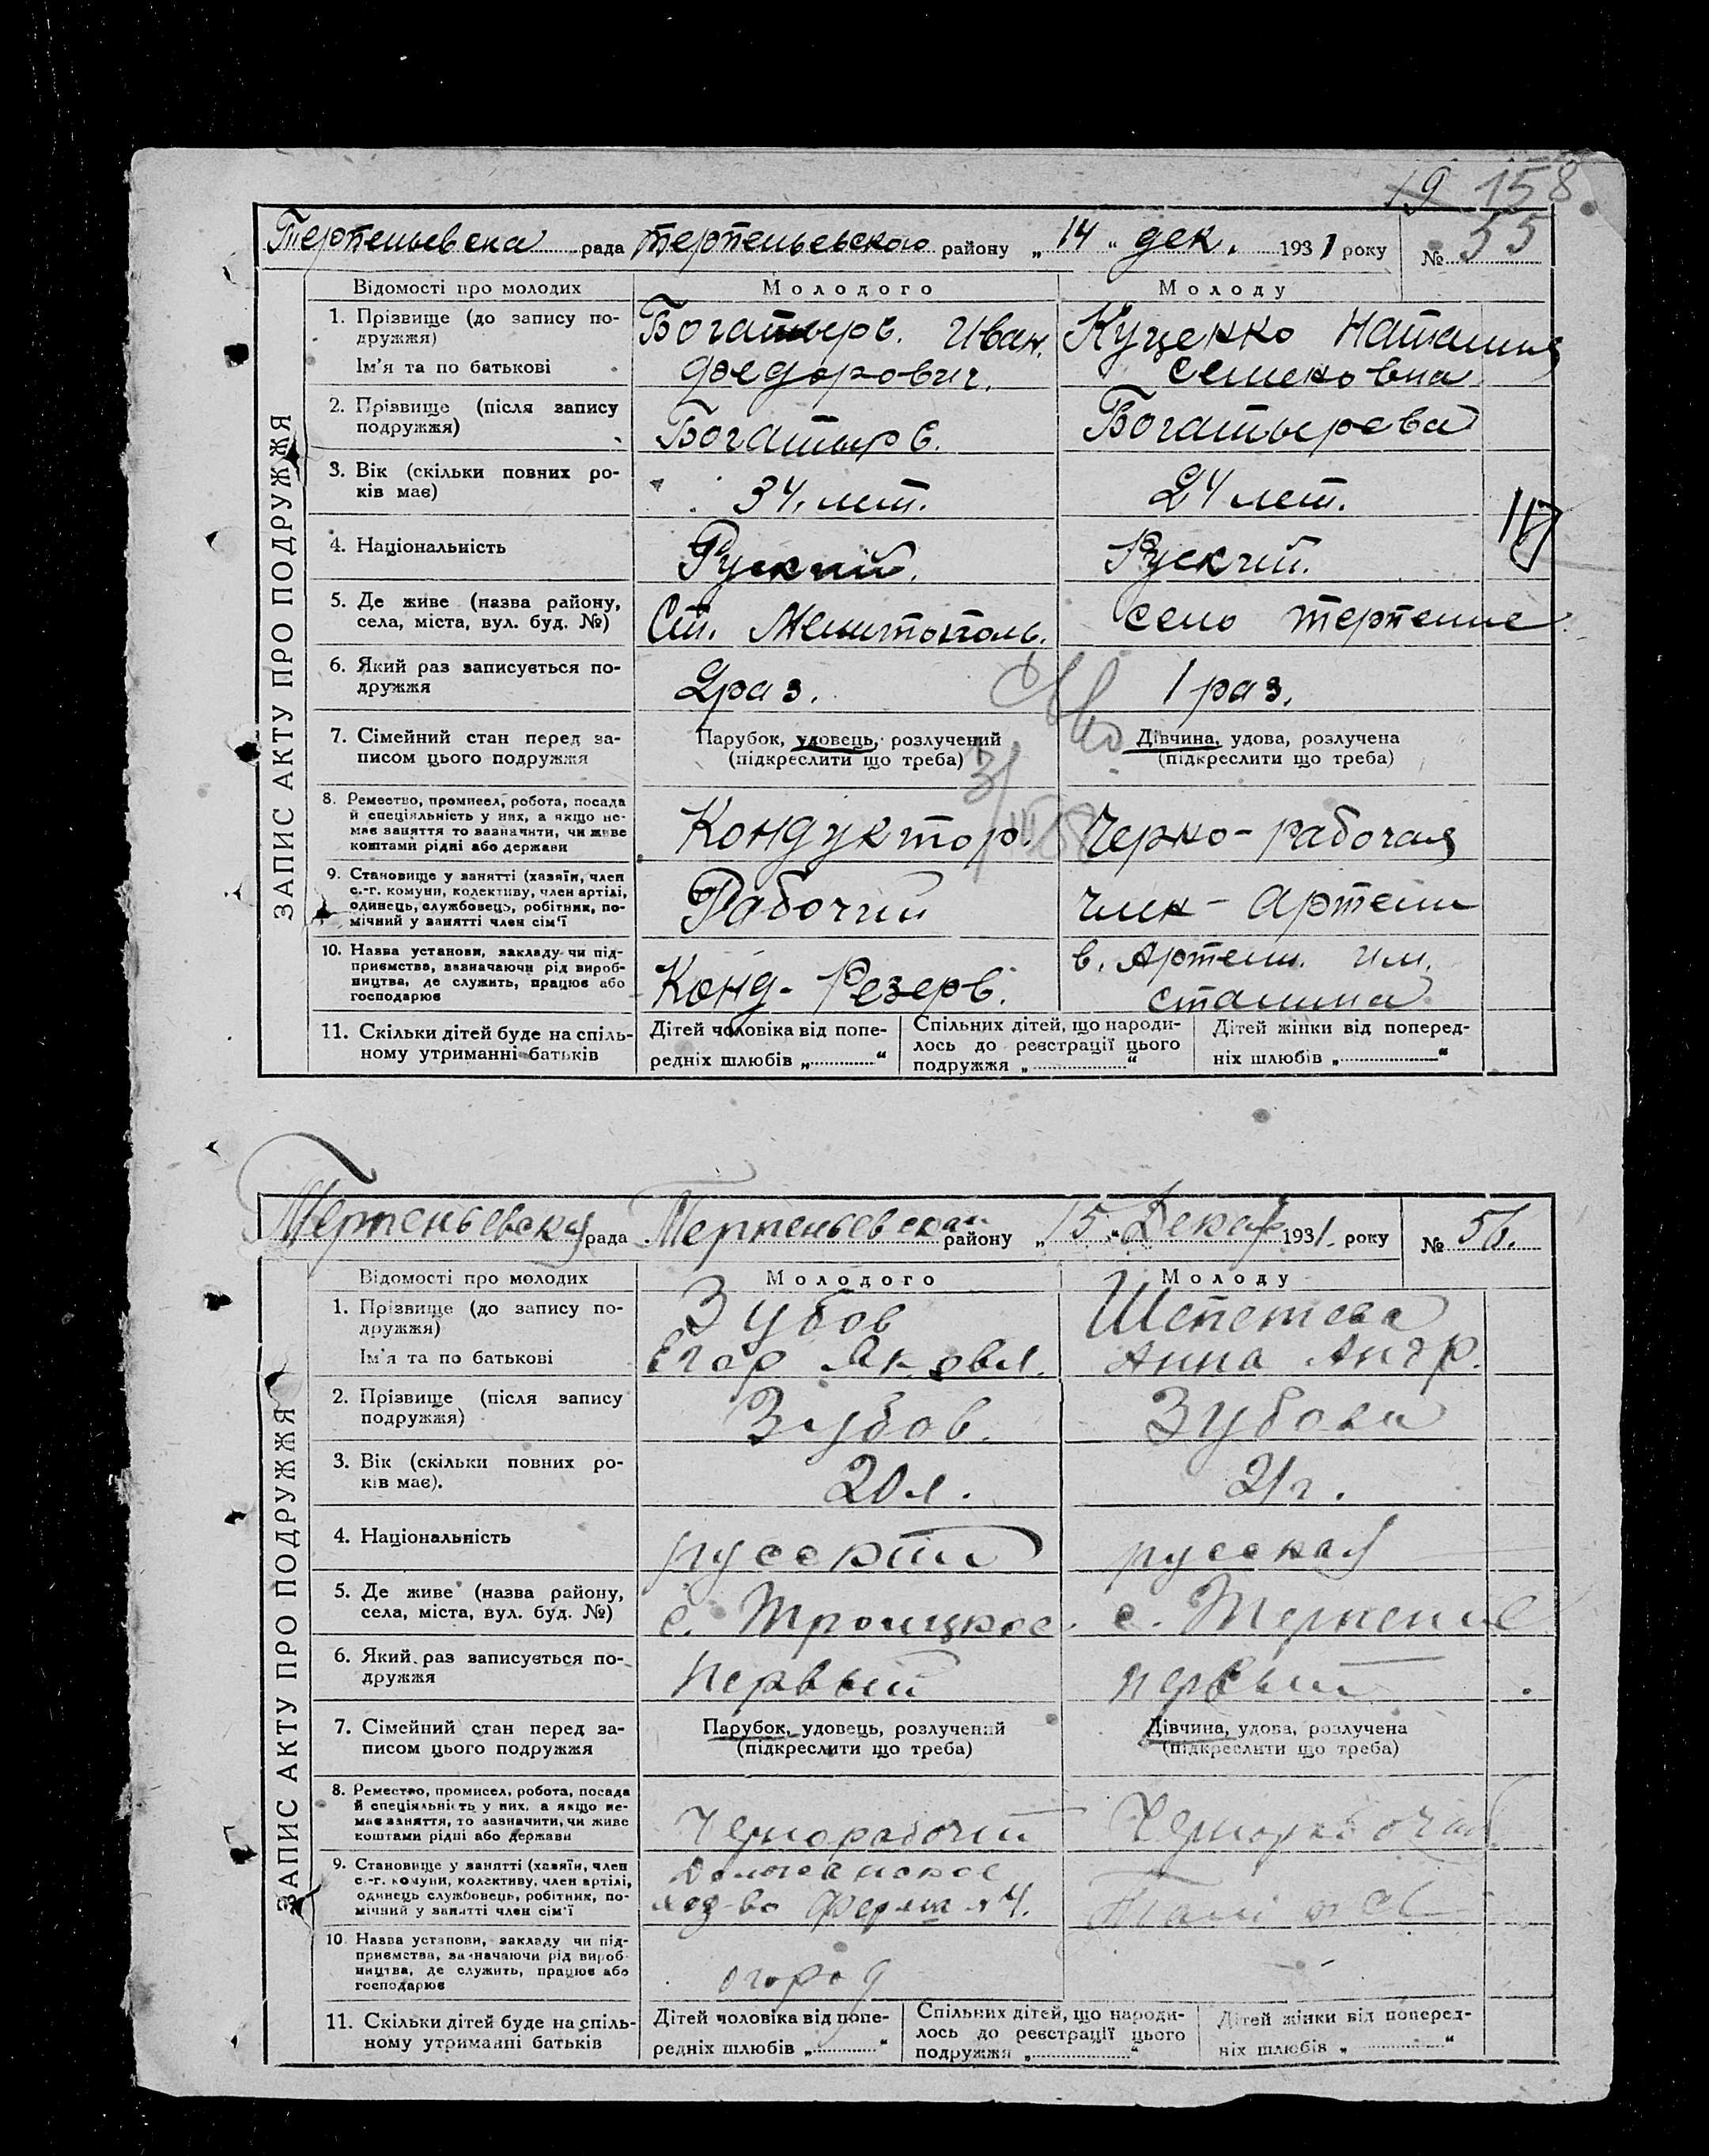 19 158
Терпеньевска рада Терпеньевского району „14“ дек. 1931 року № 55
ЗАПИС АКТУ ПРО ПОДРУЖЖЯ
Відомості про молодих Молодого Молоду
1. Прізвище (до запису подружжя) Богатырв. Иван. Куценко Наталия
Ім'я та по батькові Федорович. Семеновна
2. Прізвище (після запису
подружжя) Богатырв. Богатырева
3. Вік (скільки повних ро-
ків має) 34. лет. 24 лет.
4. Національність Руский. Руский.
5. Де живе (назва району,
села, міста, вул. буд. №) Ст. Мелитополь. село Терпение
6. Який раз записується по-
дружжя 2 раз. 1 раз.
7. Сімейний стан перед за- Парубок, удовець, розлучений Дівчина, удова, розлучена
писом цього подружжя (підкреслити що треба) (підкреслити що треба)
8. Ремество, промисел, робота, посада
й спеціяльність у них, а якщо не-
має заняття то зазначити, чи живе
коштами рідні або держави Кондуктор. Черно-рабочая
9. Становище у занятті (хазяїн, член
с.-г. комуни, колективу, член артілі,
одинець, службовець, робітник, по-
мічний у занятті член сім'ї Рабочий член-Артели
10. Назва установи, закладу чи під-
приємства, зазначаючи рід вироб-
ництва, де служить, працює або
господарює Конд-Резерв. в. Артели. им.
Сталина
11. Скільки дітей буде на спіль- Дітей чоловіка від попе- Спільних дітей, що народи- Дітей жінки від поперед-
ному утриманні батьків редніх шлюбів „ “ лось до реєстрації цього ніх шлюбів „ “
подружжя „ “
Терпеньевска рада Терпеньевскаи району „15“ Декаб 1931. року № 56.
ЗАПИС АКТУ ПРО ПОДРУЖЖЯ
Відомості про молодих Молодого Молоду
1. Прізвище (до запису по-
дружжя) Зубов
Ім'я та по батькові Егор Яковл. Анна Андр.
2. Прізвище (після запису
подружжя) Зубов. Зубова
3. Вік (скільки повних ро-
ків має). 20 л. 21 г.
4. Національність русский русская
5. Де живе (назва району,
села, міста, вул. буд. №) с. Троицкое. с. Терпение
6. Який раз записується по-
дружжя первый первый
7. Сімейний стан перед за- Парубок, удовець, розлучений Дівчина, удова, розлучена
писом цього подружжя (підкреслити що треба) (підкреслити що треба)
8. Ремество, промисел, робота, посада
й спеціяльність у них, а якщо не-
має заняття, то зазначити, чи живе
коштами рідні або держави Чернорабочий Чернорабочая
9. Становище у занятті (хазяїн, член
с.-г. комуни, колективу, член артілі,
одинець службовець, робітник, по-
мічний у занятті член сім'ї ферма
10. Назва установи, закладу чи під-
приємства, зазначаючи рід вироб-
ництва, де служить, працює або
господарює огород
11. Скільки дітей буде на спіль- Дітей чоловіка від попе- Спільних дітей, що народи- Дітей жінки від поперед-
ному утриманні батьків редніх шлюбів „ “ лось до реєстрації цього ніх шлюбів „ “
подружжя „ “